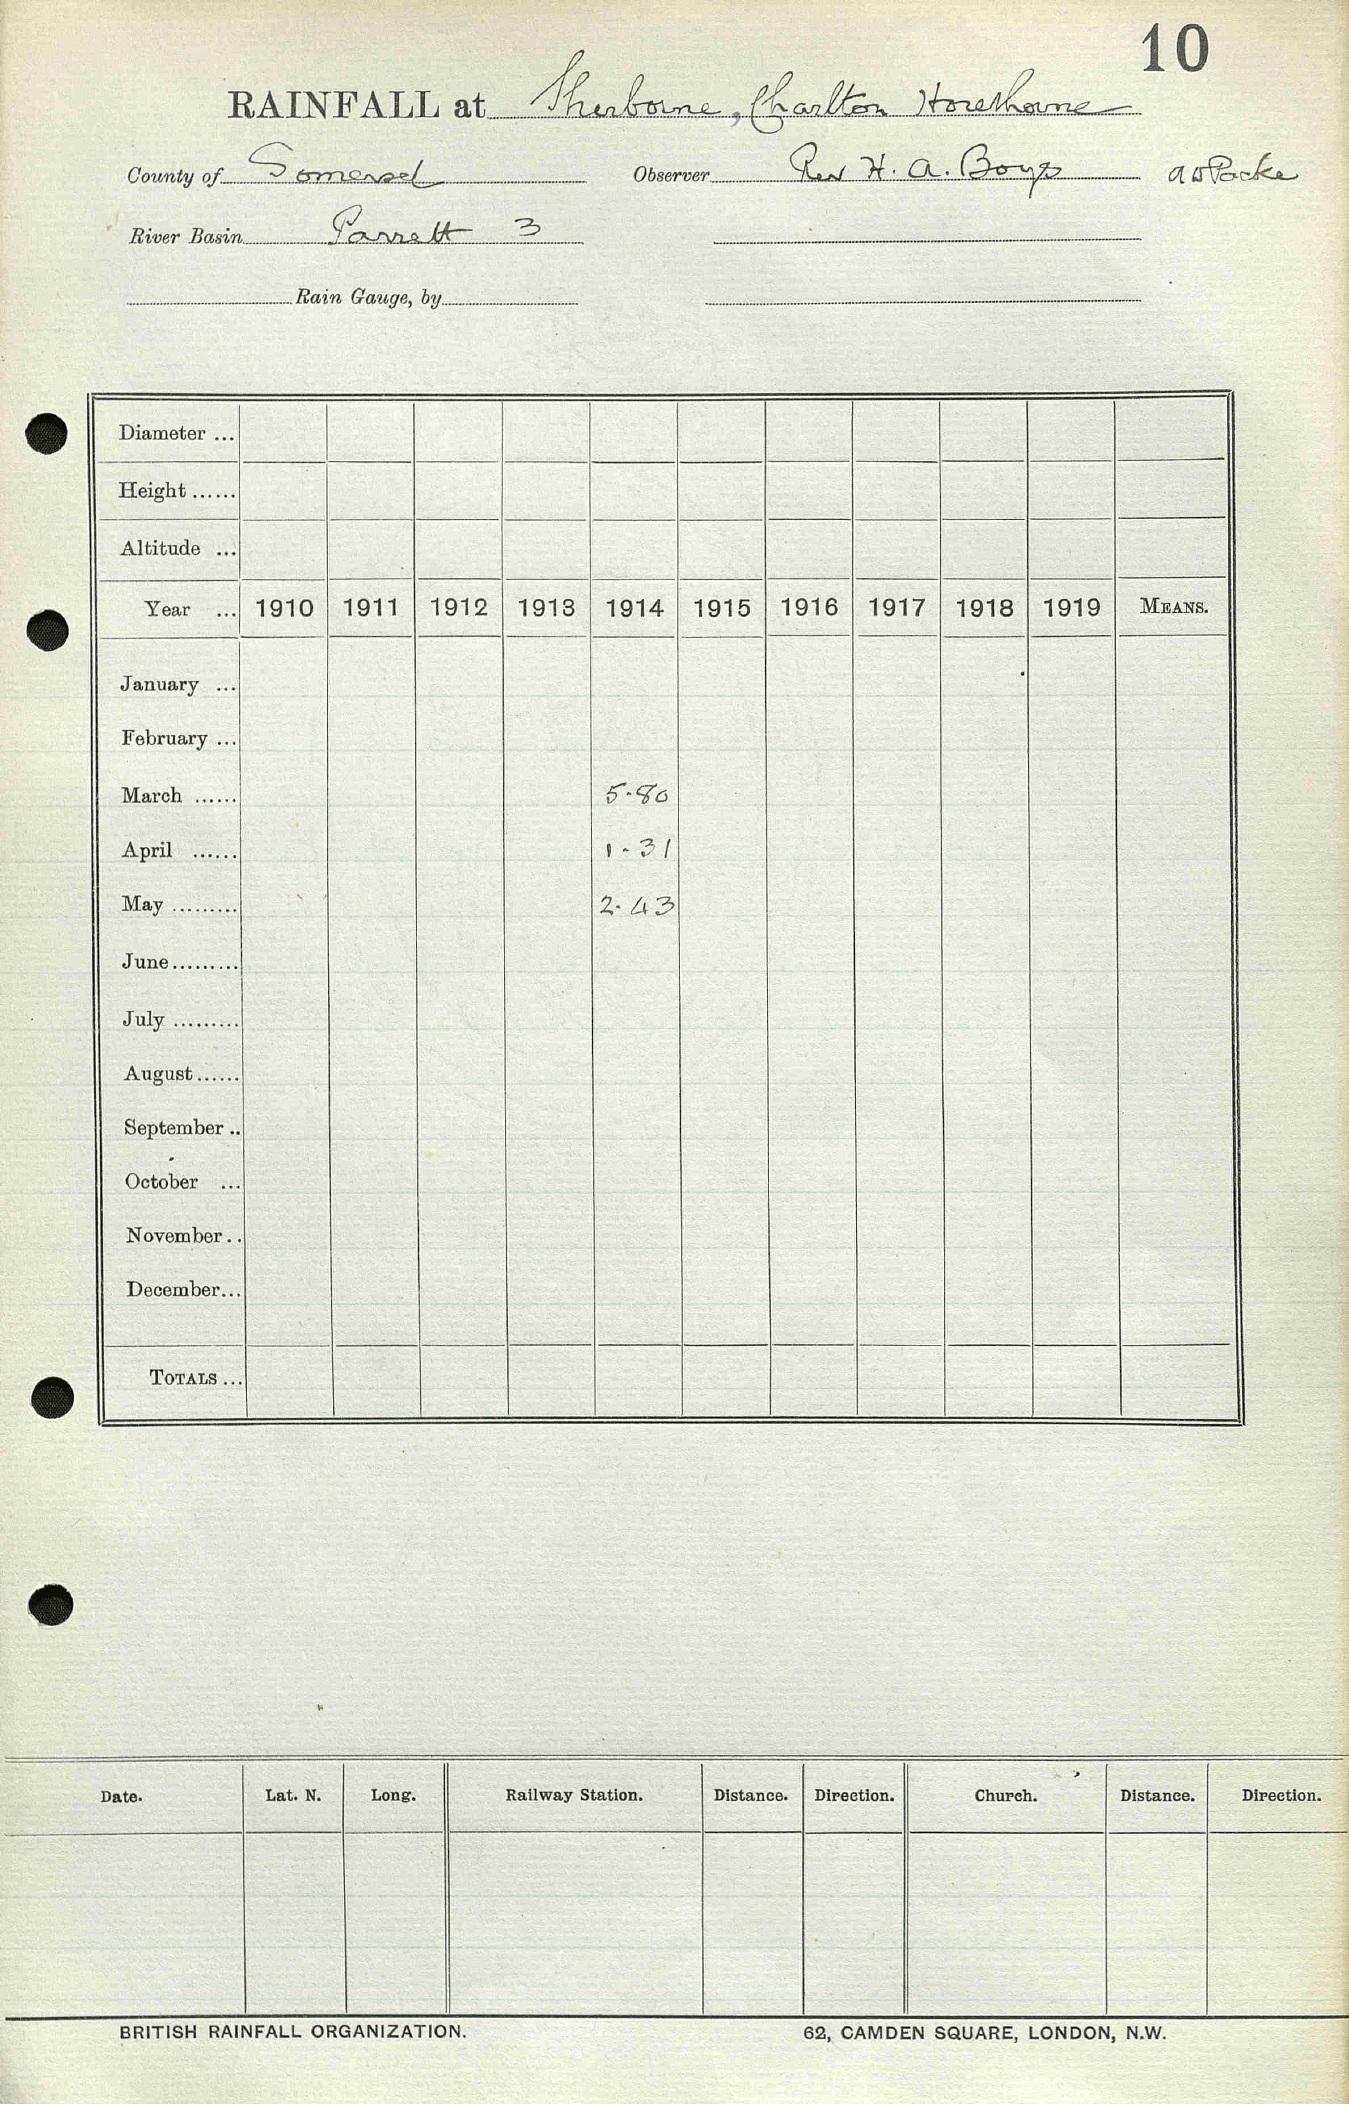 10
RAINFALL at Sherborne, Charlton Horethorne
County of Somerset Observer Rev H. A. Boys
River Basin Parrett 3
Rain Gauge, by
Diameter ...
Height ......
Altitude ...
Year ... 1910 1911 1912 1913 1914 1915 1916 1917 1918 1919 MEANS.
January ...
February ...
March ...... 5.80
April ...... 1.31
May ......... 2.43
June.........
July .........
August......
September ..
October ...
November..
December...
TOTALS ...
Date. Lat. N. Long. Railway Station. Distance. Direction. Church. Distance. Direction.
BRITISH RAINFALL ORGANIZATION. 62, CAMDEN SQUARE, LONDON, N.W.